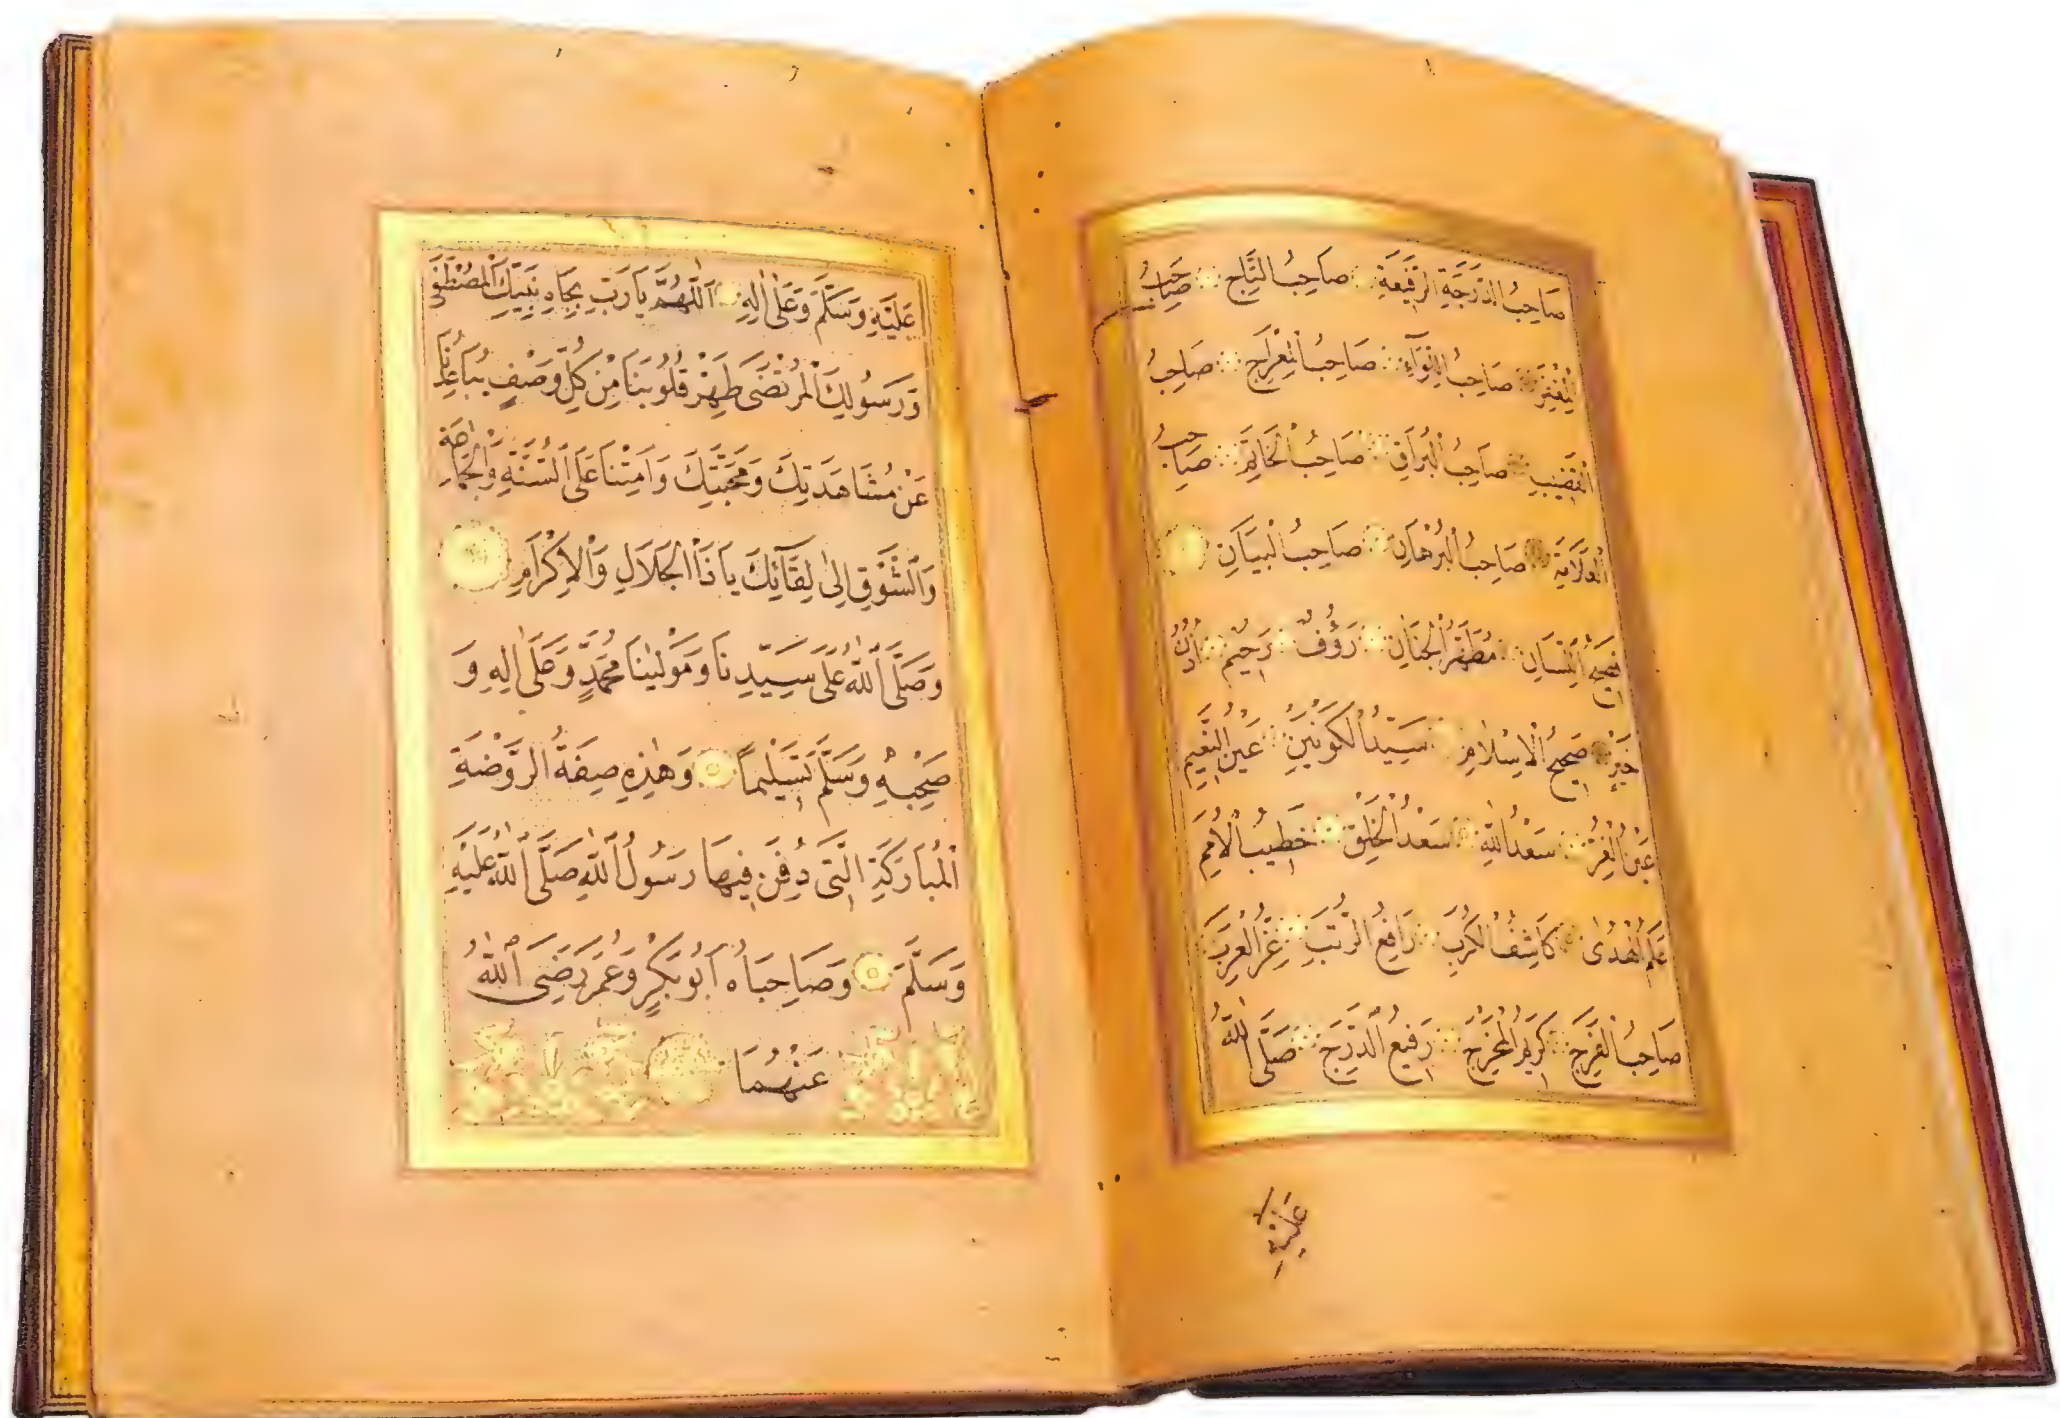 صَاحِبُ الدَّرَجَةِ الرَّفِيعَةِ صَاحِبُ التَّاجِ صَاحِبُ
الْمِغْفَرِ صَاحِبُ اللِّوَآءِ صَاحِبُ الْمِعْرَاجِ صَاحِبُ
الْقَضِيبِ صَاحِبُ الْبُرَاقِ صَاحِبُ الْخَاتَمِ صَاحِبُ
الْعَلَامَةِ صَاحِبُ الْبُرْهَانِ صَاحِبُ الْبَيَانِ
فَصِيحُ اللِّسَانِ مُطَهَّرُ الْجَنَانِ رَؤُفٌ رَحِيمٌ اُذُنُ
خَيْرٍ صَحِيحُ الْاِسْلَامِ سَيِّدُ الْكَوْنَيْنِ عَيْنُ النَّعِيمِ
عَيْنُ الْغُرِّ سَعْدُ اللّٰهِ سَعْدُ الْخَلْقِ خَطِيبُ الْاُمَمِ
عَلَمُ الْهُدٰى كَاشِفُ الْكُرَبِ رَافِعُ الرُّتَبِ عِزُّ الْعَرَبِ
صَاحِبُ الْفَرَجِ كَرِيمُ الْمَخْرَجِ رَفِيعُ الدَّرَجِ صَلَّى اللّٰهُ
عَلَيْهِ
عَلَيْهِ وَسَلَّمَ وَعَلٰى اٰلِهِ اَللّٰهُمَّ يَا رَبِّ بِجَاهِ نَبِيِّكَ الْمُصْطَفٰى
وَرَسُولِكَ الْمُرْتَضٰى طَهِّرْ قُلُوبَنَا مِنْ كُلِّ وَصْفٍ يُبَاعِدُنَا
عَنْ مُشَاهَدَتِكَ وَمَحَبَّتِكَ وَاَمِتْنَا عَلَى السُّنَّةِ وَالْجَمَاعَةِ
وَالشَّوْقِ اِلٰى لِقَآئِكَ يَا ذَا الْجَلَالِ وَالْاِكْرَامِ
وَصَلَّى اللّٰهُ عَلٰى سَيِّدِنَا وَمَوْلٰينَا مُحَمَّدٍ وَعَلٰى اٰلِهِ وَ
صَحْبِهٖ وَسَلَّمَ تَسْلِيمًا وَهٰذِهِ صِفَةُ الرَّوْضَةِ
الْمُبَارَكَةِ الَّتِى دُفِنَ فِيهَا رَسُولُ اللّٰهِ صَلَّى اللّٰهُ عَلَيْهِ
وَسَلَّمَ وَصَاحِبَاهُ اَبُو بَكْرٍ وَعُمَرُ رَضِىَ اللّٰهُ
عَنْهُمَا